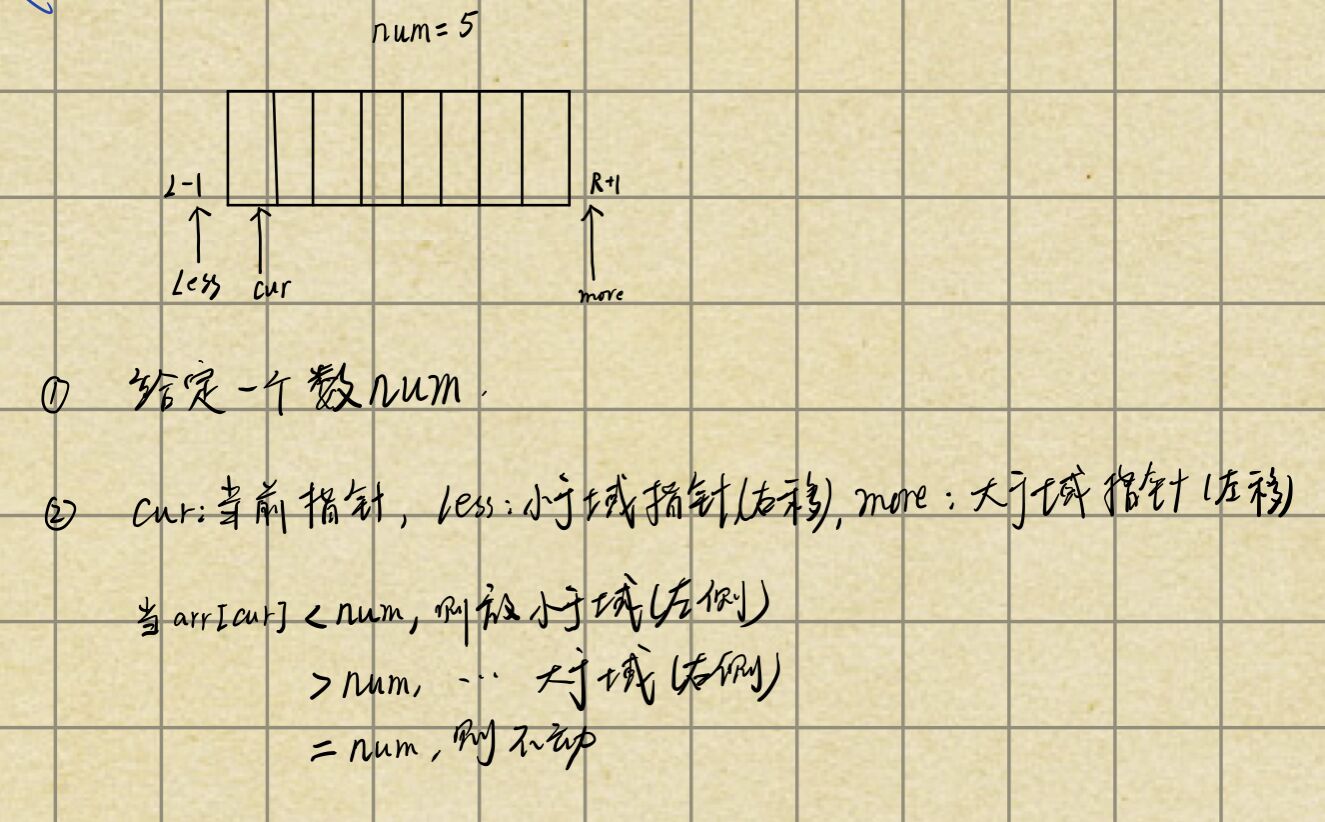 num=5
L-1 R+1
Less cur more
① 给定一个数num.
② cur:当前指针, less:小于域指针(右移), more:大于域指针(左移)
当arr[cur]<num,则放小于域(左侧)
>num, … 大于域(右侧)
=num,则不动